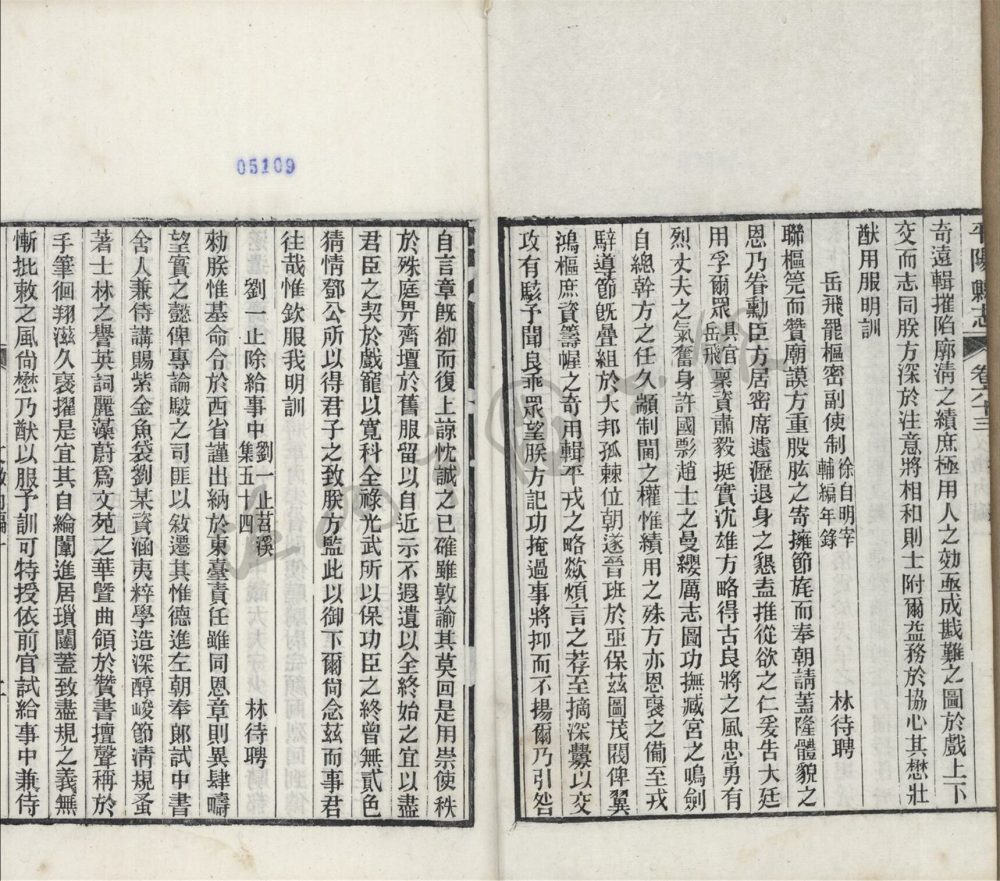 平陽縣志 卷六十三
奇遠輯摧陷廓淸之績庶極用人之効亟成戡難之圖於戲上下
交而志同朕方深於注意將相和則士附爾益務於協心其懋壯
猷用服明訓
岳飛罷樞密副使制 徐自明宰輔編年錄 林待聘
聯樞筦而贊廟謨方重股肱之寄擁節旄而奉朝請蓋隆體貌之
恩乃眷勳臣方居密席遽瀝退身之懇盍推從欲之仁爰告大廷
用孚爾眾具官岳飛稟資肅毅挺質沈雄方略得古良將之風忠勇有
烈丈夫之氣奮身許國影趙士之曼纓厲志圖功撫臧宮之鳴劍
自總幹方之任久顓制閫之權惟績用之殊方亦恩褒之備至戎
辭導節旣疊組於大邦孤棘位朝遂晉班於亞保茲圖茂閥俾翼
鴻樞庶資籌幄之奇用輯平戎之略歘煩言之荐至摘深釁以交
攻有駭予聞良乖眾望朕方記功掩過事將抑而不揚爾乃引咎
自言章旣卻而復上諒忱誠之已確雖敦諭其莫回是用崇使秩
於殊庭畀齊壇於舊服留以自近示不遐遺以全終始之宜以盡
君臣之契於戲寵以寬科全祿光武所以保功臣之終曾無貳色
猜情鄧公所以得君子之致朕方監此以御下爾尙念茲而事君
往哉惟欽服我明訓
劉一止除給事中 劉一止苕溪集五十四 林待聘
勑朕惟基命令於西省謹出納於東臺責任雖同恩章則異肆疇
望實之懿俾專論駮之司匪以敘遷其惟德進左朝奉郞試中書
舍人兼侍講賜紫金魚袋劉某資涵夷粹學造深醇峻節淸規蚤
著士林之譽英詞麗藻蔚爲文苑之華曁曲領於贊書擅聲稱於
手筆徊翔滋久褒擢是宜其自綸闈進居瑣闥蓋致盡規之義無
慚批敕之風尙懋乃猷以服予訓可特授依前官試給事中兼侍
05109